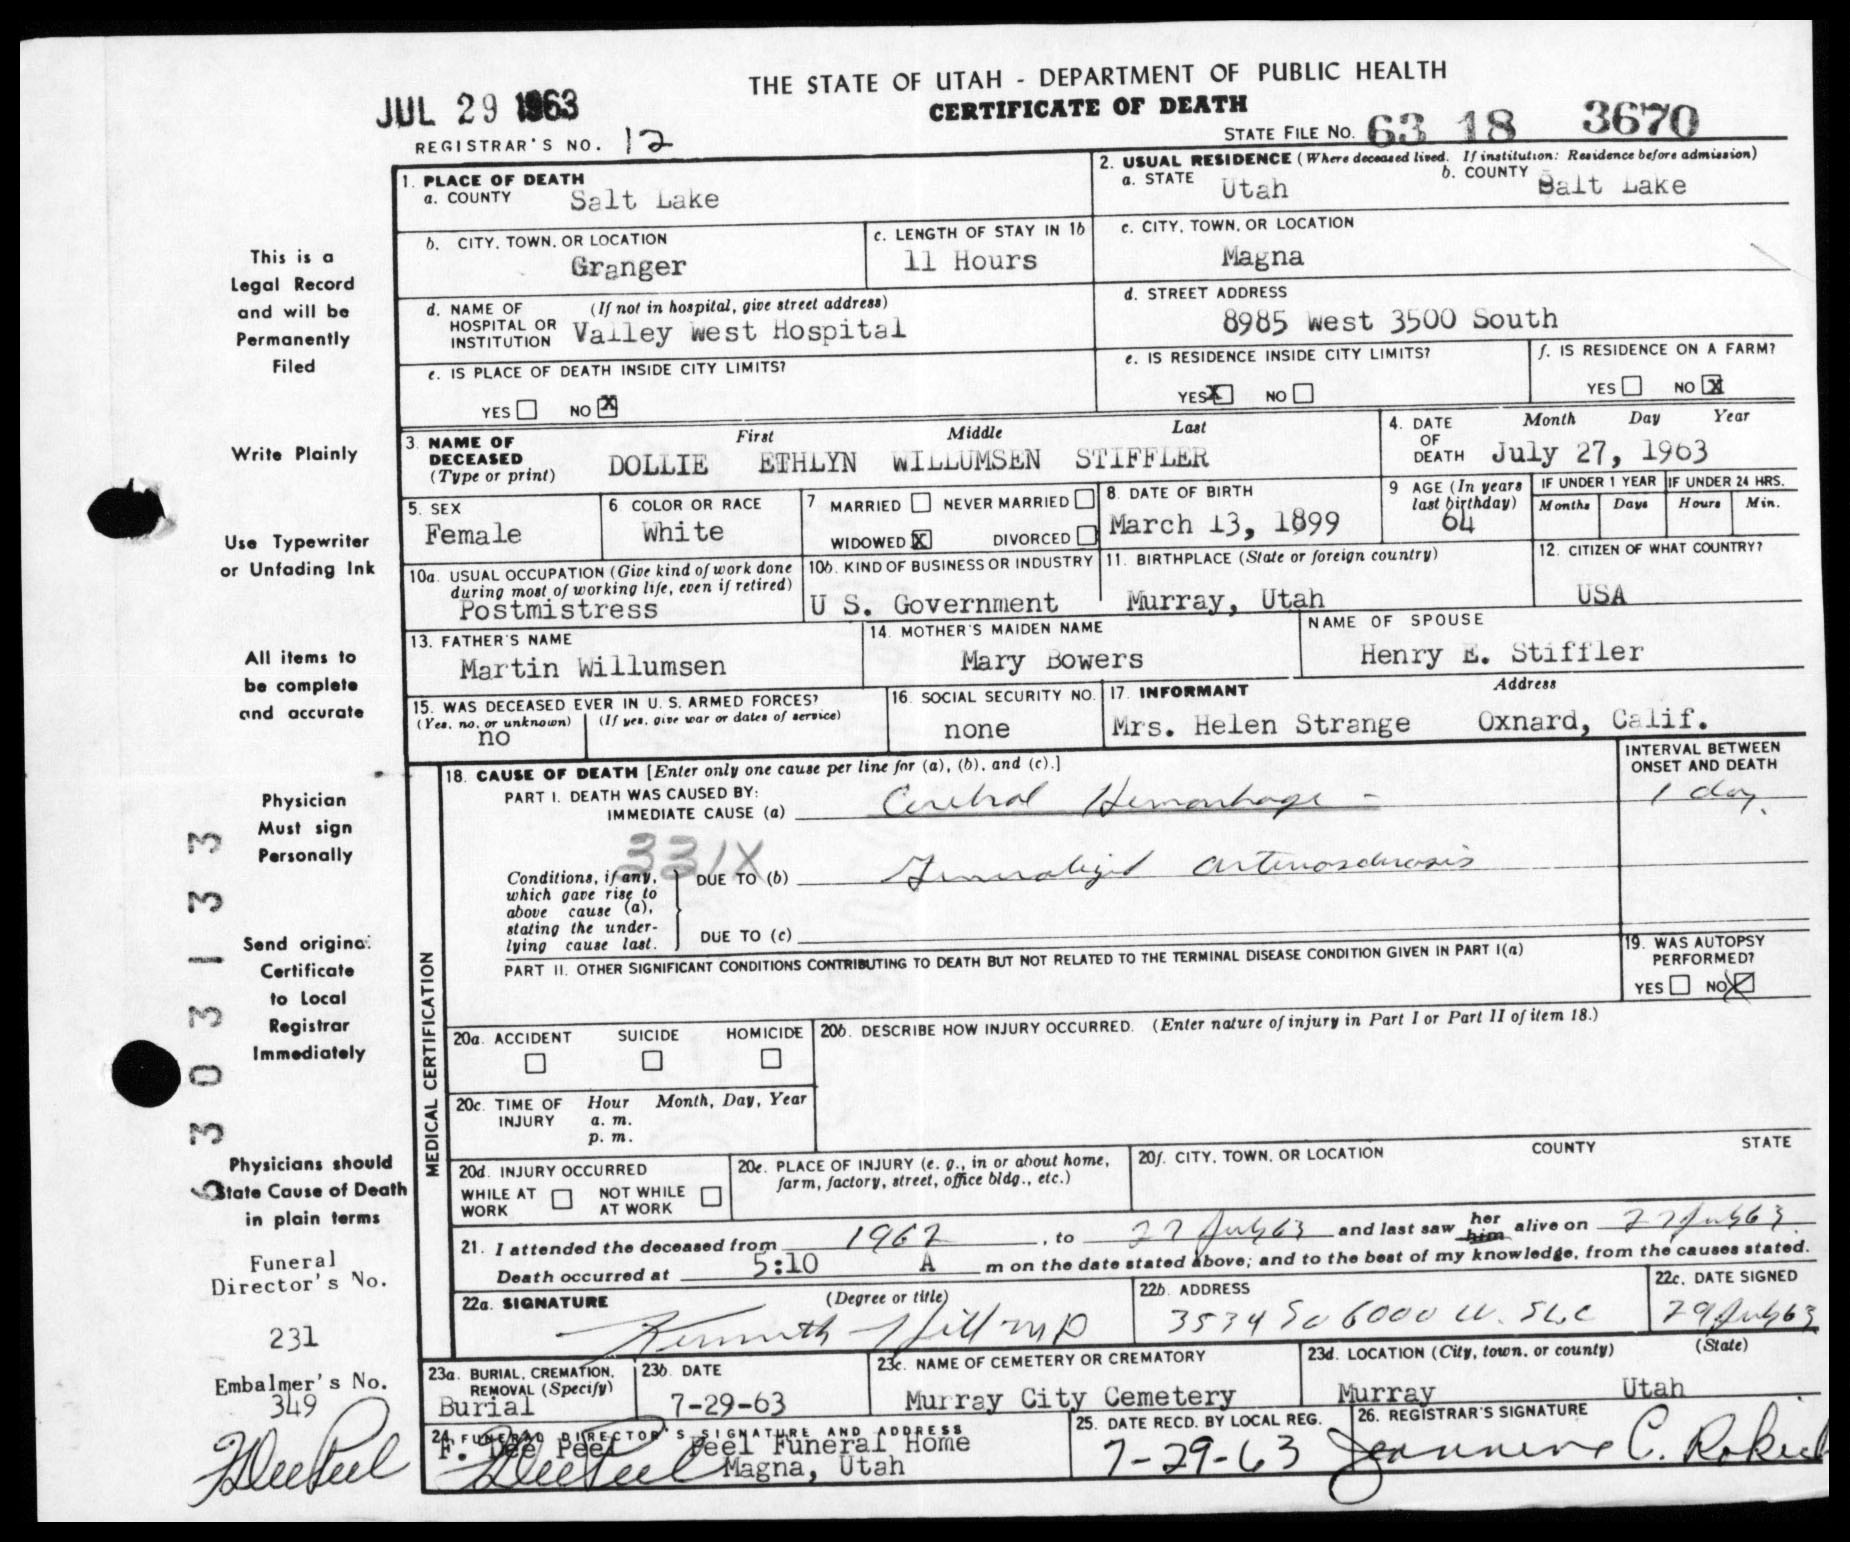 THE STATE OF UTAH - DEPARTMENT OF PUBLIC HEALTH
CERTIFICATE OF DEATH
JUL 29 1963
REGISTRAR'S NO. 12
STATE FILE NO. 63 18 3670
1. PLACE OF DEATH
a. COUNTY Salt Lake
2. USUAL RESIDENCE (Where deceased lived. If institution: Residence before admission)
a. STATE Utah b. COUNTY Salt Lake
b. CITY, TOWN, OR LOCATION Granger
c. LENGTH OF STAY IN 1b 11 Hours
c. CITY, TOWN, OR LOCATION
Magna
d. NAME OF HOSPITAL OR INSTITUTION (If not in hospital, give street address)
Valley West Hospital
d. STREET ADDRESS
8985 West 3500 South
e. IS PLACE OF DEATH INSIDE CITY LIMITS?
YES NO X
e. IS RESIDENCE INSIDE CITY LIMITS?
YES X NO
f. IS RESIDENCE ON A FARM?
YES NO X
3. NAME OF DECEASED (Type or print)
First Middle Last
DOLLIE ETHLYN WILLUMSEN STIFFLER
4. DATE OF DEATH Month Day Year
July 27, 1963
5. SEX
Female
6 COLOR OR RACE
White
7 MARRIED NEVER MARRIED
WIDOWED X DIVORCED
8. DATE OF BIRTH
March 13, 1899
9 AGE (In years last birthday)
64
IF UNDER 1 YEAR
Months Days
IF UNDER 24 HRS.
Hours Min.
10a. USUAL OCCUPATION (Give kind of work done during most of working life, even if retired)
Postmistress
10b. KIND OF BUSINESS OR INDUSTRY
U S. Government
11. BIRTHPLACE (State or foreign country)
Murray, Utah
12. CITIZEN OF WHAT COUNTRY?
USA
13. FATHER'S NAME
Martin Willumsen
14. MOTHER'S MAIDEN NAME
Mary Bowers
NAME OF SPOUSE
Henry E. Stiffler
15. WAS DECEASED EVER IN U. S. ARMED FORCES?
(Yes, no, or unknown) (If yes, give war or dates of service)
no
16. SOCIAL SECURITY NO.
none
17. INFORMANT Address
Mrs. Helen Strange Oxnard, Calif.
MEDICAL CERTIFICATION
18. CAUSE OF DEATH [Enter only one cause per line for (a), (b), and (c).]
INTERVAL BETWEEN ONSET AND DEATH
PART I. DEATH WAS CAUSED BY:
IMMEDIATE CAUSE (a) Cerebral Hemorrhage - 1 day.
331X
Conditions, if any, which gave rise to above cause (a), stating the underlying cause last.
DUE TO (b) Generalized arteriosclerosis
DUE TO (c)
PART II. OTHER SIGNIFICANT CONDITIONS CONTRIBUTING TO DEATH BUT NOT RELATED TO THE TERMINAL DISEASE CONDITION GIVEN IN PART I(a)
19. WAS AUTOPSY PERFORMED?
YES NO X
20a. ACCIDENT SUICIDE HOMICIDE
20b. DESCRIBE HOW INJURY OCCURRED. (Enter nature of injury in Part I or Part II of item 18.)
20c. TIME OF INJURY Hour Month, Day, Year
a. m.
p. m.
20d. INJURY OCCURRED
WHILE AT WORK NOT WHILE AT WORK
20e. PLACE OF INJURY (e. g., in or about home, farm, factory, street, office bldg., etc.)
20f. CITY, TOWN, OR LOCATION COUNTY STATE
21. I attended the deceased from 1962, to 27 July 63 and last saw her him alive on 27 July 63.
Death occurred at 5:10 A m on the date stated above; and to the best of my knowledge, from the causes stated.
22a. SIGNATURE (Degree or title)
Kenneth Hill MD
22b. ADDRESS
3534 So 6000 W. SLC
22c. DATE SIGNED
29 July 63
23a. BURIAL, CREMATION, REMOVAL (Specify)
Burial
23b. DATE
7-29-63
23c. NAME OF CEMETERY OR CREMATORY
Murray City Cemetery
23d. LOCATION (City, town, or county) (State)
Murray Utah
24. FUNERAL DIRECTOR'S SIGNATURE AND ADDRESS
F. Dee Peel Peel Funeral Home
F Dee Peel Magna, Utah
25. DATE RECD. BY LOCAL REG.
7-29-63
26. REGISTRAR'S SIGNATURE
Jeannine C.
This is a
Legal Record
and will be
Permanently
Filed
Write Plainly
Use Typewriter
or Unfading Ink
All items to
be complete
and accurate
Physician
Must sign
Personally
Send original
Certificate
to Local
Registrar
Immediately
Physicians should
State Cause of Death
in plain terms
Funeral
Director's No.
231
Embalmer's No.
349
F Dee Peel